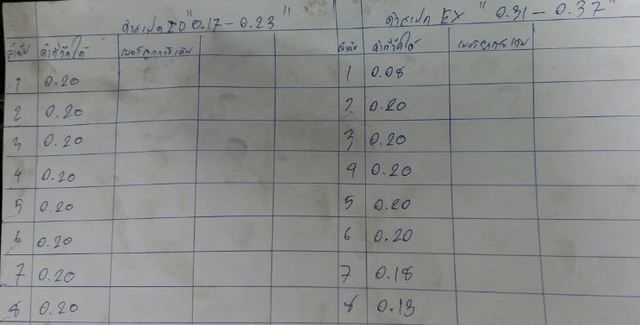 ค่าสเปค IO "0.17 - 0.23" ค่าสเปค EX "0.31 - 0.37"
ลำดับ ค่าที่วัดได้ เบอร์ลูกการเดิม ลำดับ ค่าที่วัดได้ เบอร์ลูกการเดิม
1 0.20 1 0.08
2 0.20 2 0.20
3 0.20 3 0.20
4 0.20 4 0.20
5 0.20 5 0.20
6 0.20 6 0.20
7 0.20 7 0.18
8 0.20 8 0.13